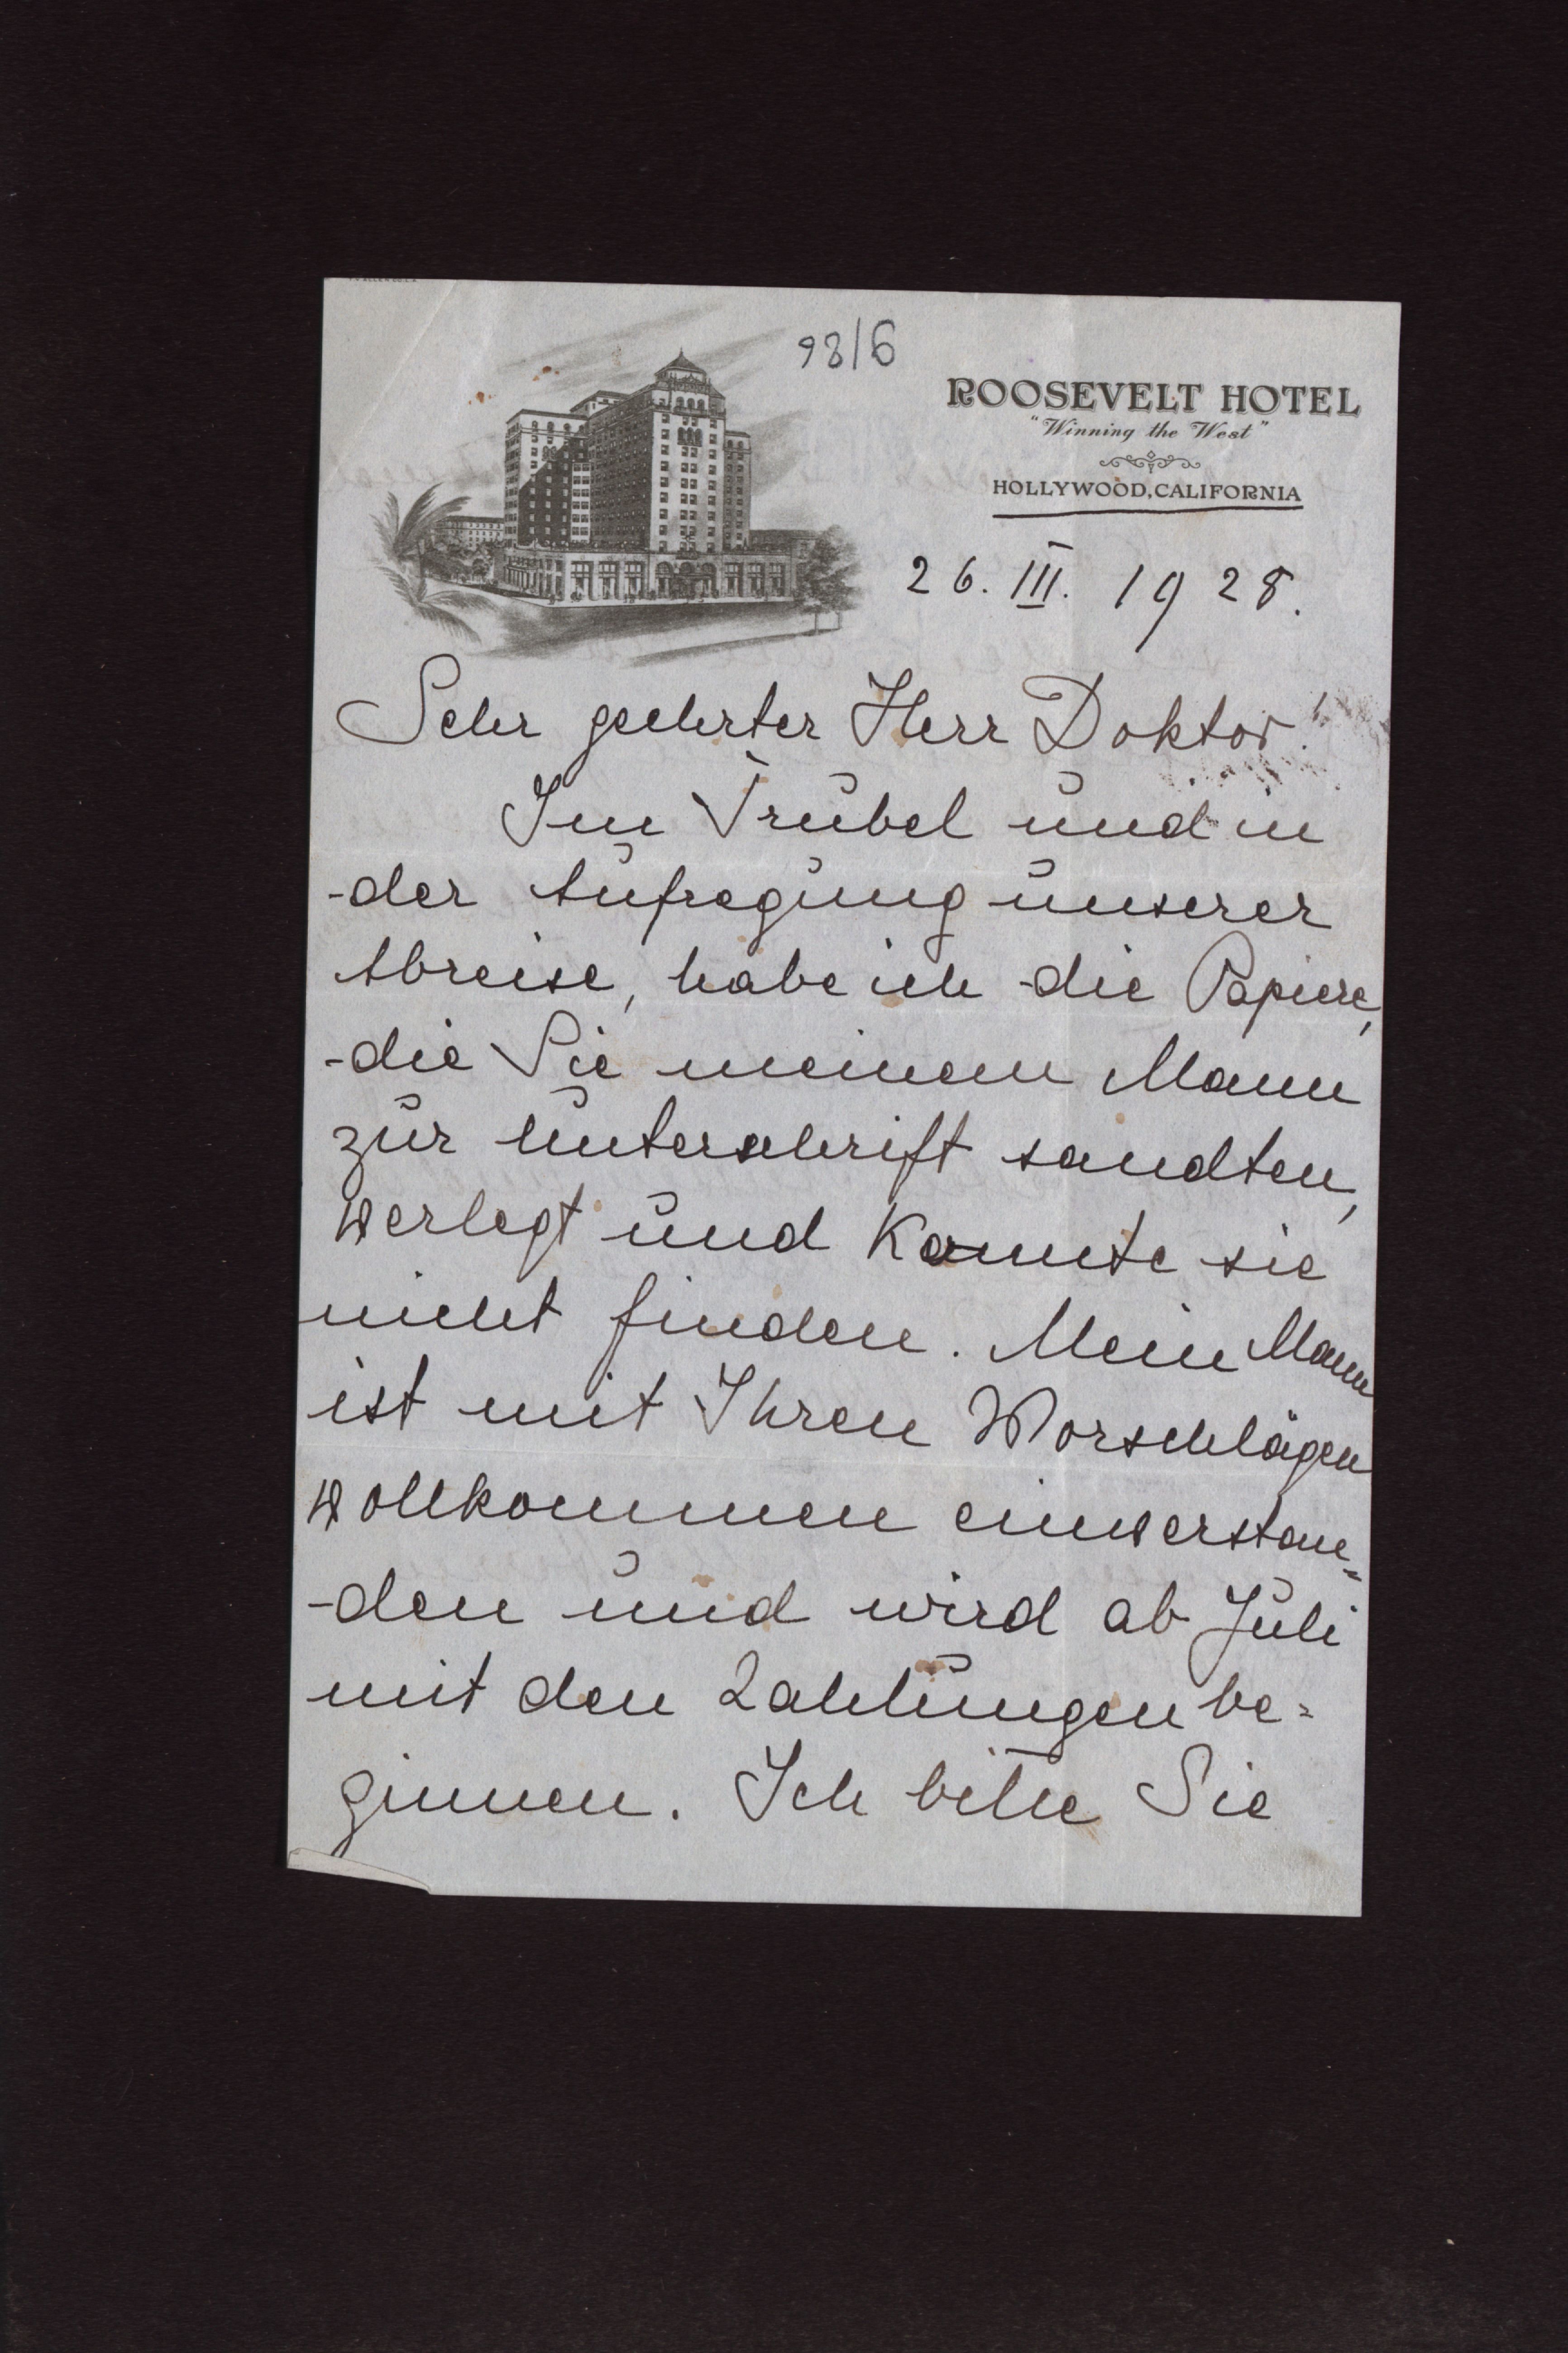 98/6
ROOSEVELT HOTEL
"Winning the West"
HOLLYWOOD, CALIFORNIA
26. III. 1928.
Sehr geehrter Herr Doktor!
Im Trubel und in
der Aufregung unserer
Abreise, habe ich die Papiere,
die Sie meinem Mann
zur Unterschrift sandten,
verlegt und konnte sie
nicht finden. Mein Mann
ist mit Ihren Vorschlägen
vollkommen einverstan=
den und wird ab Juli
mit den Zahlungen be=
ginnen. Ich bitte Sie